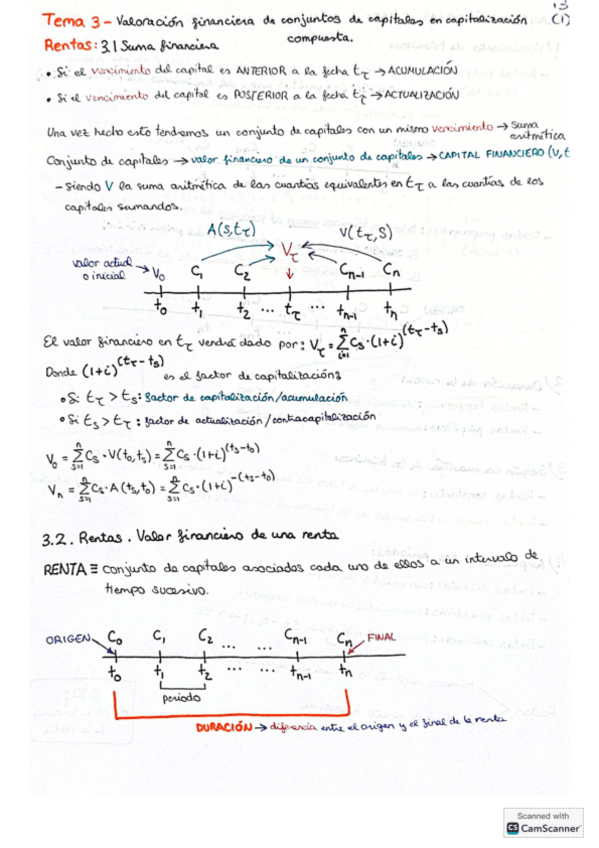 13
Tema 3 - Valoración financiera de conjuntos de capitales en capitalización (1)
compuesta.
Rentas: 3.1 Suma financiera
• Si el vencimiento del capital es ANTERIOR a la fecha tτ → ACUMULACIÓN
• Si el vencimiento del capital es POSTERIOR a la fecha tτ → ACTUALIZACIÓN
Una vez hecho esto tendremos un conjunto de capitales con un mismo vencimiento → suma aritmética
Conjunto de capitales → valor financiero de un conjunto de capitales → CAPITAL FINANCIERO (V, t
- Siendo V la suma aritmética de las cuantías equivalentes en tτ a las cuantías de los
capitales sumandos.
A(s,tτ) V(tτ,S)
Vτ
valor actual o inicial → V₀ C₁ C₂ Cn-1 Cn
t₀ t₁ t₂ ... tτ ... tn-1 tn
El valor financiero en tτ vendrá dado por: Vτ = Σⁿᵢ₌₁ Cs · (1+i)^(tτ - ts)
Donde (1+i)^(tτ - ts) es el factor de capitalización:
• Si tτ > ts: factor de capitalización/acumulación
• Si ts > tτ: factor de actualización/contracapitalización
V₀ = Σⁿₛ₌₁ Cs · V(t₀,ts) = Σⁿₛ₌₁ Cs · (1+i)^(ts-t₀)
Vn = Σⁿₛ₌₁ Cs · A(ts,t₀) = Σⁿₛ₌₁ Cs · (1+i)^-(ts-t₀)
3.2. Rentas. Valor financiero de una renta
RENTA ≡ conjunto de capitales asociados cada uno de ellos a un intervalo de
tiempo sucesivo.
ORIGEN C₀ C₁ C₂ ... ... Cn-1 Cn FINAL
t₀ t₁ t₂ ... ... tn-1 tn
periodo
DURACIÓN → diferencia entre el origen y el final de la renta
Scanned with
CS CamScanner